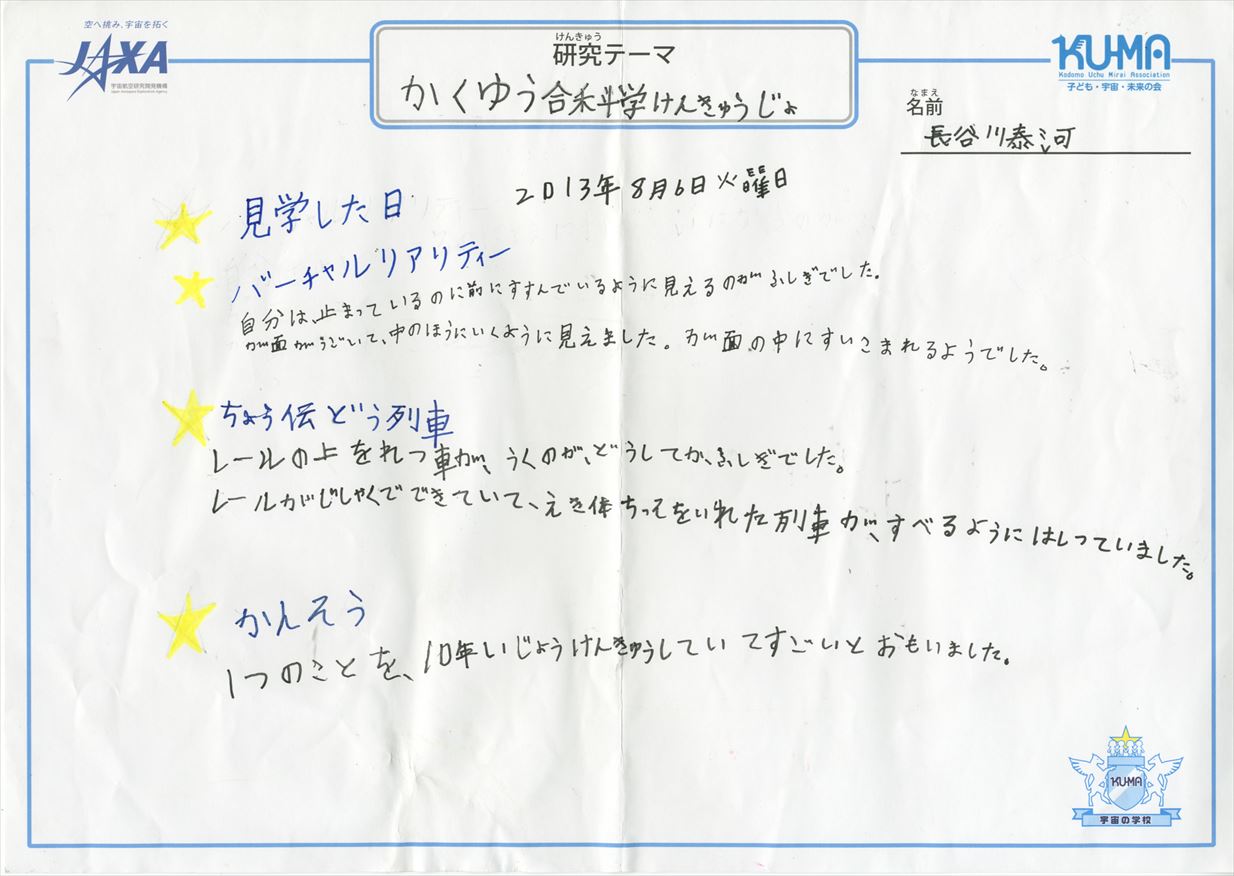 空へ挑み、宇宙を拓く
JAXA
宇宙航空研究開発機構
Japan Aerospace Exploration Agency
けんきゅう
研究テーマ
かくゆう合科学けんきゅうじょ
KU-MA
Kodomo Uchu Mirai Association
子ども・宇宙・未来の会
なまえ
名前
長谷川泰河
見学した日
2013年8月6日火曜日
バーチャルリアリティー
自分は、止まっているのに前にすすんでいるように見えるのがふしぎでした。
が面がうごいて、中のほうにいくように見えました。が面の中にすいこまれるようでした。
ちょう伝どう列車
レールの上をれっ車が、うくのが、どうしてか、ふしぎでした。
レールがじしゃくでできていて、えき体ちっそをいれた列車が、すべるようにはしっていました。
かんそう
1つのことを、10年いじょうけんきゅうしていてすごいとおもいました。
KU-MA
宇宙の学校